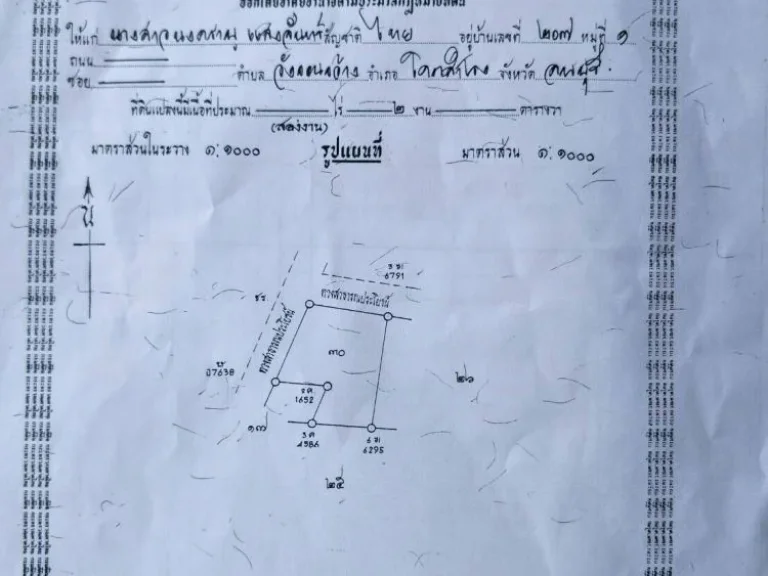 ให้แก่ นางสาว แสงจันทร์ สัญชาติ ไทย อยู่บ้านเลขที่ ๒๐๗ หมู่ที่ ๑
ถนน
ซอย ตำบล วังขอนขว้าง อำเภอ โคกสำโรง จังหวัด ลพบุรี
ที่ดินแปลงนี้มีเนื้อที่ประมาณ ไร่ ๒ งาน ตารางวา
(สองงาน)
มาตราส่วนในระวาง ๑:๑๐๐๐ รูปแผนที่ มาตราส่วน ๑:๑๐๐๐
น
6791
ทางสาธารณประโยชน์
ทางสาธารณประโยชน์
๓๐
07638
๒๖
1652
๑๗
4386
6295
๒๕